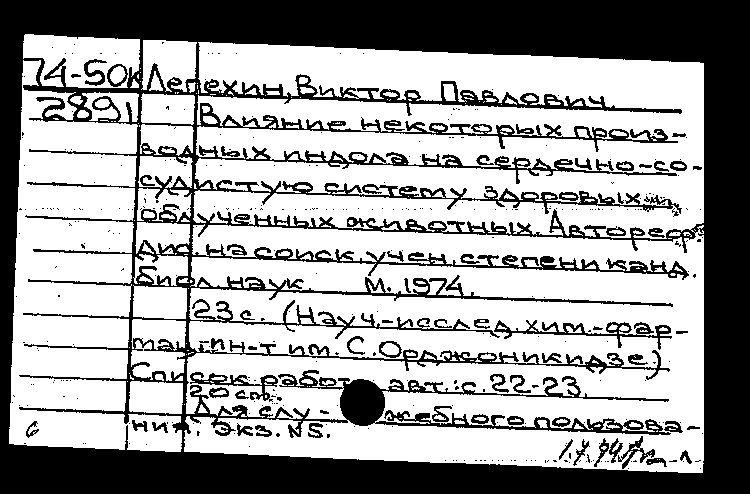 74-50к Лепехин, Виктор Павлович.
2891 Влияние некоторых произ-
водных индола на сердечно-со-
судистую систему здоровых
облученных животных. Автореф.
дис. на соиск. учен. степени канд.
биол. наук. М., 1974.
23 с. (Науч.-исслед. хим.-фар-
мац. ин-т им. С. Орджоникидзе)
Список работ авт.: с. 22-23.
20 ст.
Для слу- жебного пользова-
ния. Экз. N5.
6